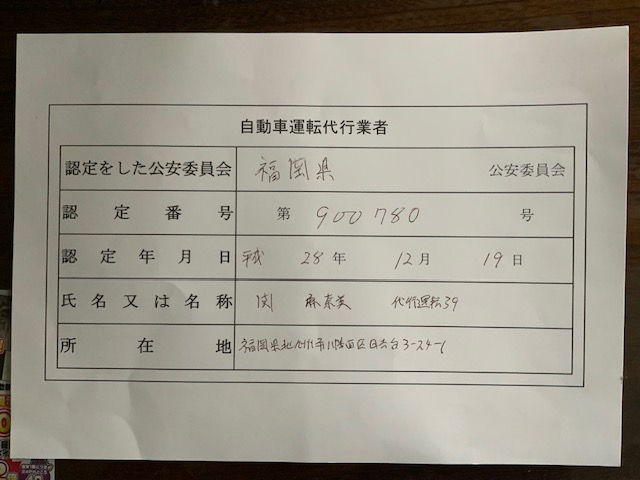 自動車運転代行業者
認定をした公安委員会 福岡県 公安委員会
認定番号 第 900780 号
認定年月日 平成 28年 12月 19日
氏名又は名称 関 麻奈美 代行運転39
所在地 福岡県北九州市八幡西区日吉台3-24-1